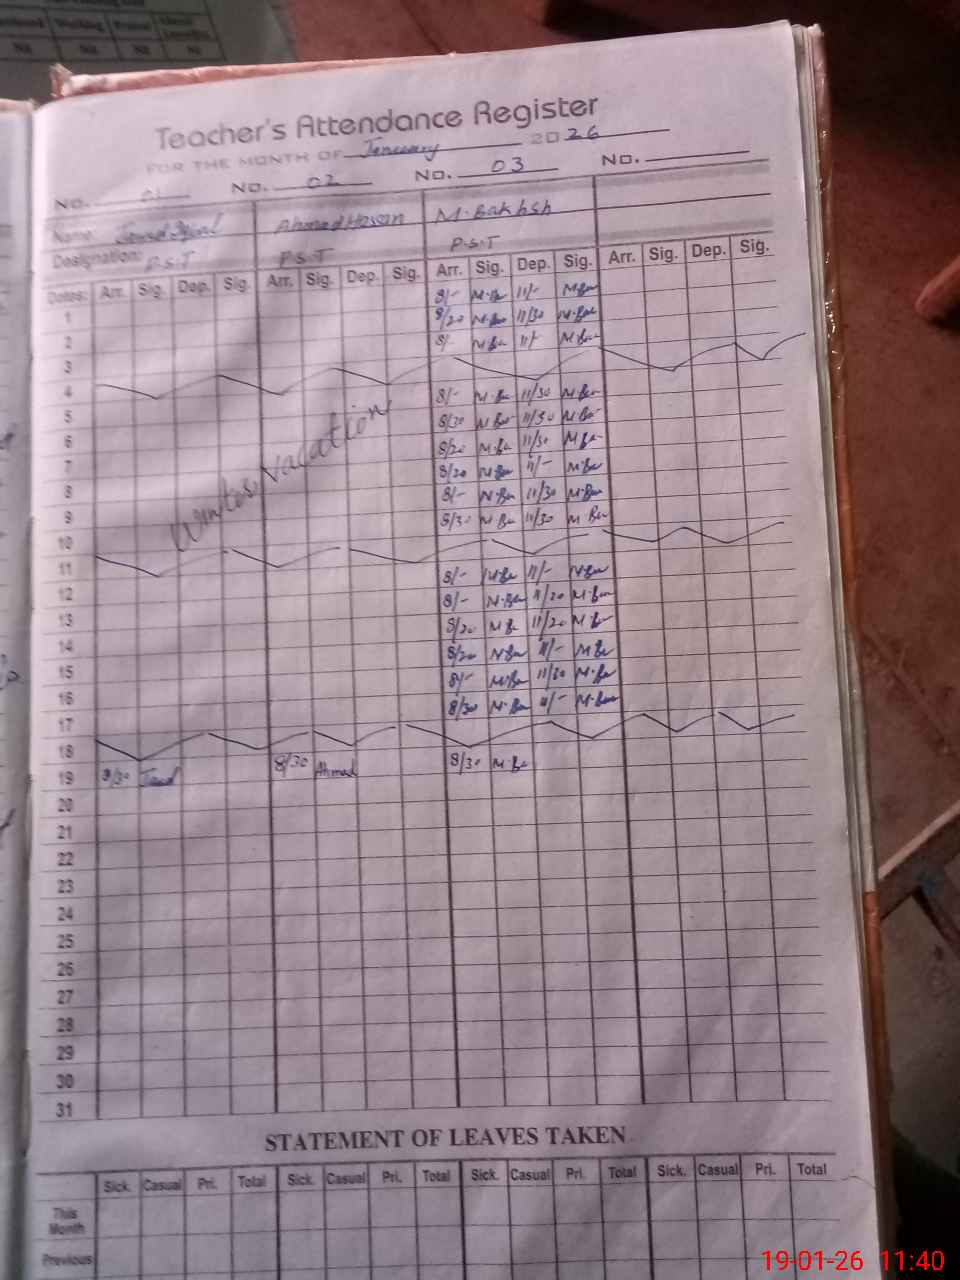 Nil Nil Nil Nil
Teacher's Attendance Register
FOR THE MONTH OF January 2026
No. 01 No. 02 No. 03 No.
Name: Javed Iqbal Ahmad Hassan M. Bakhsh
Designation: P.S.T P.S.T P.S.T
Dates: Arr. Sig. Dep. Sig. Arr. Sig. Dep. Sig. Arr. Sig. Dep. Sig. Arr. Sig. Dep. Sig.
1 8/- 11/-
2 8/20 11/30
3 8/- 11/-
4
5 8/- 11/30
6 8/30 11/30
7 8/20 11/30
8 8/20 11/-
9 8/- 11/30
10 8/30 11/30
Winter vacation
11
12 8/- 11/-
13 8/- 11/20
14 8/20 11/20
15 8/20 11/-
16 8/- 11/30
17 8/30 11/-
18
19 8/30 8/30 Ahmad 8/30
20
21
22
23
24
25
26
27
28
29
30
31
STATEMENT OF LEAVES TAKEN
Sick. Casual Pri. Total Sick. Casual Pri. Total Sick. Casual Pri. Total Sick. Casual Pri. Total
This Month
Previous
19-01-26 11:40